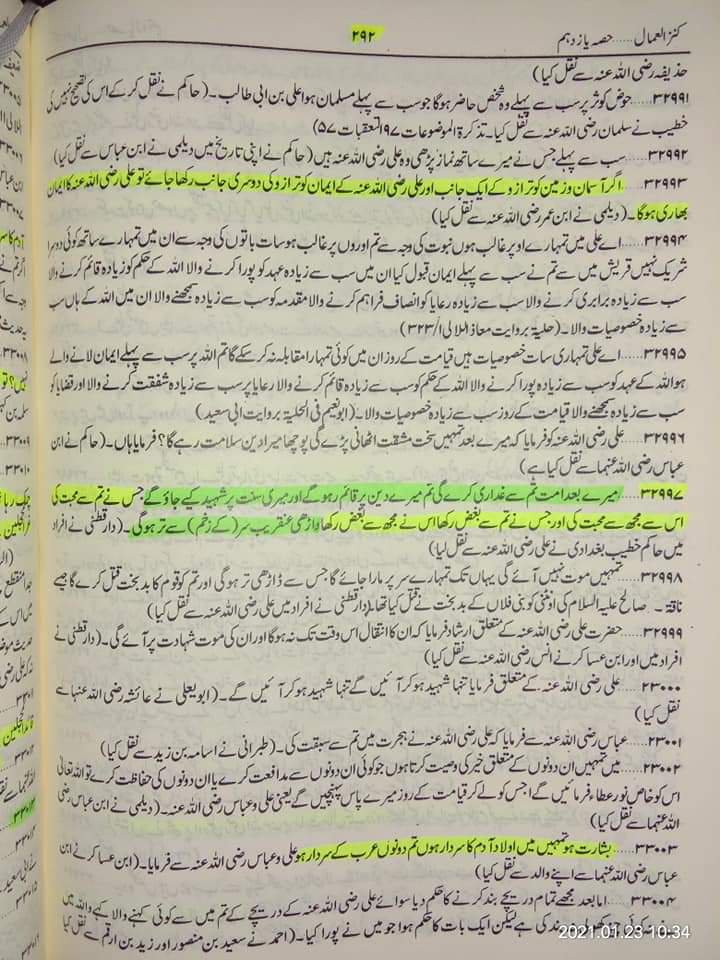 کنز العمال ..... حصہ یازدہم
۲۹۲
حذیفہ رضی اللہ عنہ سے نقل کیا)
۳۲۹۹۱..... حوض کوثر پر سب سے پہلے وہ شخص حاضر ہوگا جو سب سے پہلے مسلمان ہوا علی بن ابی طالب۔ (حاکم نے نقل کر کے اس کی تصحیح نہیں کی
خطیب نے سلمان رضی اللہ عنہ سے نقل کیا۔ تذکرۃ الموضوعات ۹۷ التعقبات ۵۷)
۳۲۹۹۲..... سب سے پہلے جس نے میرے ساتھ نماز پڑھی وہ علی رضی اللہ عنہ ہیں (حاکم نے اپنی تاریخ میں دیلمی نے ابن عباس سے نقل کیا)
۳۲۹۹۳..... اگر آسمان و زمین کو ترازو کے ایک جانب اور علی رضی اللہ عنہ کے ایمان کو ترازو کی دوسری جانب رکھا جائے تو علی رضی اللہ عنہ کا ایمان
بھاری ہوگا۔ (دیلمی نے ابن عمر رضی اللہ عنہ سے نقل کیا)
۳۲۹۹۴..... اے علی میں تمہارے اوپر غالب ہوں نبوت کی وجہ سے تم اوروں پر غالب ہو سات باتوں کی وجہ سے ان میں تمہارے ساتھ کوئی دوسرا
شریک نہیں قریش میں سے تم نے سب سے پہلے ایمان قبول کیا ان میں سب سے زیادہ عہد کو پورا کرنے والا اللہ کے حکم کو زیادہ قائم کرنے والا
سب سے زیادہ برابری کرنے والا سب سے زیادہ رعایا کو انصاف فراہم کرنے والا مقدمہ کو سب سے زیادہ سمجھنے والا ان میں اللہ کے ہاں سب
سے زیادہ خصوصیات والا۔ (حلیۃ بروایت معاذ اللالی ۳۲۳/۱)
۳۲۹۹۵..... اے علی تمہاری سات خصوصیات ہیں قیامت کے روز ان میں کوئی تمہارا مقابلہ نہ کر سکے گا تم اللہ پر سب سے پہلے ایمان لانے والے
ہو اللہ کے عہد کو سب سے زیادہ پورا کرنے والا اللہ کے حکم کو سب سے زیادہ قائم کرنے والا رعایا پر سب سے زیادہ شفقت کرنے والا اور قضایا کو
سب سے زیادہ سمجھنے والا قیامت کے روز سب سے زیادہ خصوصیات والا۔ (ابونعیم فی الحلیۃ بروایت ابی سعید)
۳۲۹۹۶..... علی رضی اللہ عنہ کو فرمایا کہ میرے بعد تمہیں سخت مشقت اٹھانی پڑے گی پوچھا میرا دین سلامت رہے گا؟ فرمایا ہاں۔ (حاکم نے ابن
عباس رضی اللہ عنہما سے نقل کیا ہے)
۳۲۹۹۷..... میرے بعد امت تم سے غداری کرے گی تم میرے دین پر قائم رہو گے اور میری سنت پر شہید کیے جاؤ گے جس نے تم سے محبت کی
اس سے مجھ سے محبت کی اور جس نے تم سے بغض رکھا اس نے مجھ سے بغض رکھا داڑھی عنقریب سر (کے زخم) سے تر ہوگی۔ (دارقطنی نے افراد
میں حاکم خطیب بغدادی نے علی رضی اللہ عنہ سے نقل کیا)
۳۲۹۹۸..... تمہیں موت نہیں آئے گی یہاں تک تمہارے سر پر مارا جائے گا جس سے ڈاڑھی تر ہوگی اور تم کو قوم کا بدبخت قتل کرے گا جیسے
ناقۃ۔ صالح علیہ السلام کی اونٹنی کو بنی فلاں کے بدبخت نے قتل کیا تھا۔ (دارقطنی نے افراد میں علی رضی اللہ عنہ سے نقل کیا)
۳۲۹۹۹..... حضرت علی رضی اللہ عنہ کے متعلق ارشاد فرمایا کہ ان کا انتقال اس وقت تک نہ ہوگا اور ان کی موت شہادت پر آئے گی۔ (دارقطنی نے
افراد میں اور ابن عساکر نے انس رضی اللہ عنہ سے نقل کیا)
۲۳۰۰۰..... علی رضی اللہ عنہ کے متعلق فرمایا تنہا شہید ہو کر آئیں گے تنہا شہید ہو کر آئیں گے۔ (ابویعلی نے عائشہ رضی اللہ عنہا سے
نقل کیا)
۲۳۰۰۱..... عباس رضی اللہ عنہ سے فرمایا کہ علی رضی اللہ عنہ نے ہجرت میں تم سے سبقت کی۔ (طبرانی نے اسامہ بن زید سے نقل کیا)
۲۳۰۰۲..... میں تمہیں ان دونوں کے متعلق خیر کی وصیت کرتا ہوں جو کوئی ان دونوں سے مدافعت کرے یا ان دونوں کی حفاظت کرے تو اللہ تعالی
اس کو خاص نور عطاء فرمائیں گے اجس کو لے کر قیامت کے روز میرے پاس پہنچیں گے یعنی علی و عباس رضی اللہ عنہ۔ (دیلمی نے ابن عباس رضی
اللہ عنہما سے نقل کیا)
۳۳۰۰۳..... بشارت ہو تمہیں میں اولاد آدم کا سردار ہوں تم دونوں عرب کے سردار ہو علی و عباس رضی اللہ عنہ سے فرمایا۔ (ابن عساکر نے ابن
عباس رضی اللہ عنہما سے اپنے والد سے نقل کیا)
۳۳۰۰۴..... اما بعد مجھے تمام دریچے بند کرنے کا حکم دیا سوائے علی رضی اللہ عنہ کے دریچے کے تم میں سے کوئی کہنے والا کہے واللہ میں
بند کی ہے لیکن ایک بات کا حکم ہوا جو میں نے پورا کیا۔ (احمد نے سعید بن منصور اور زید بن ارقم سے نقل کیا
2021.01.23 10:34